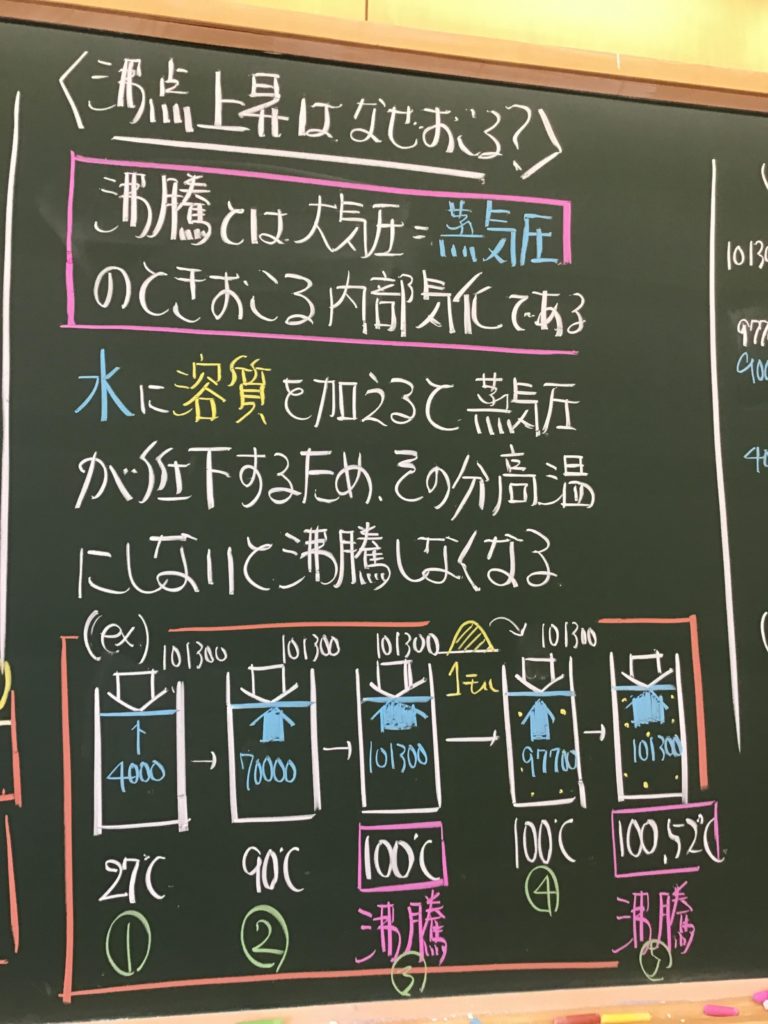 〈沸点上昇はなぜおこる?〉
沸騰とは大気圧=蒸気圧
のときおこる内部気化である
水に溶質を加えると蒸気圧
が低下するため、その分高温
にしないと沸騰しなくなる
(ex)
101300 101300 101300 1モル 101300
4000 70000 101300 97700 101300
27℃ 90℃ 100℃ 100℃ 100.52℃
① ② 沸騰 ④ 沸騰
③ ⑤